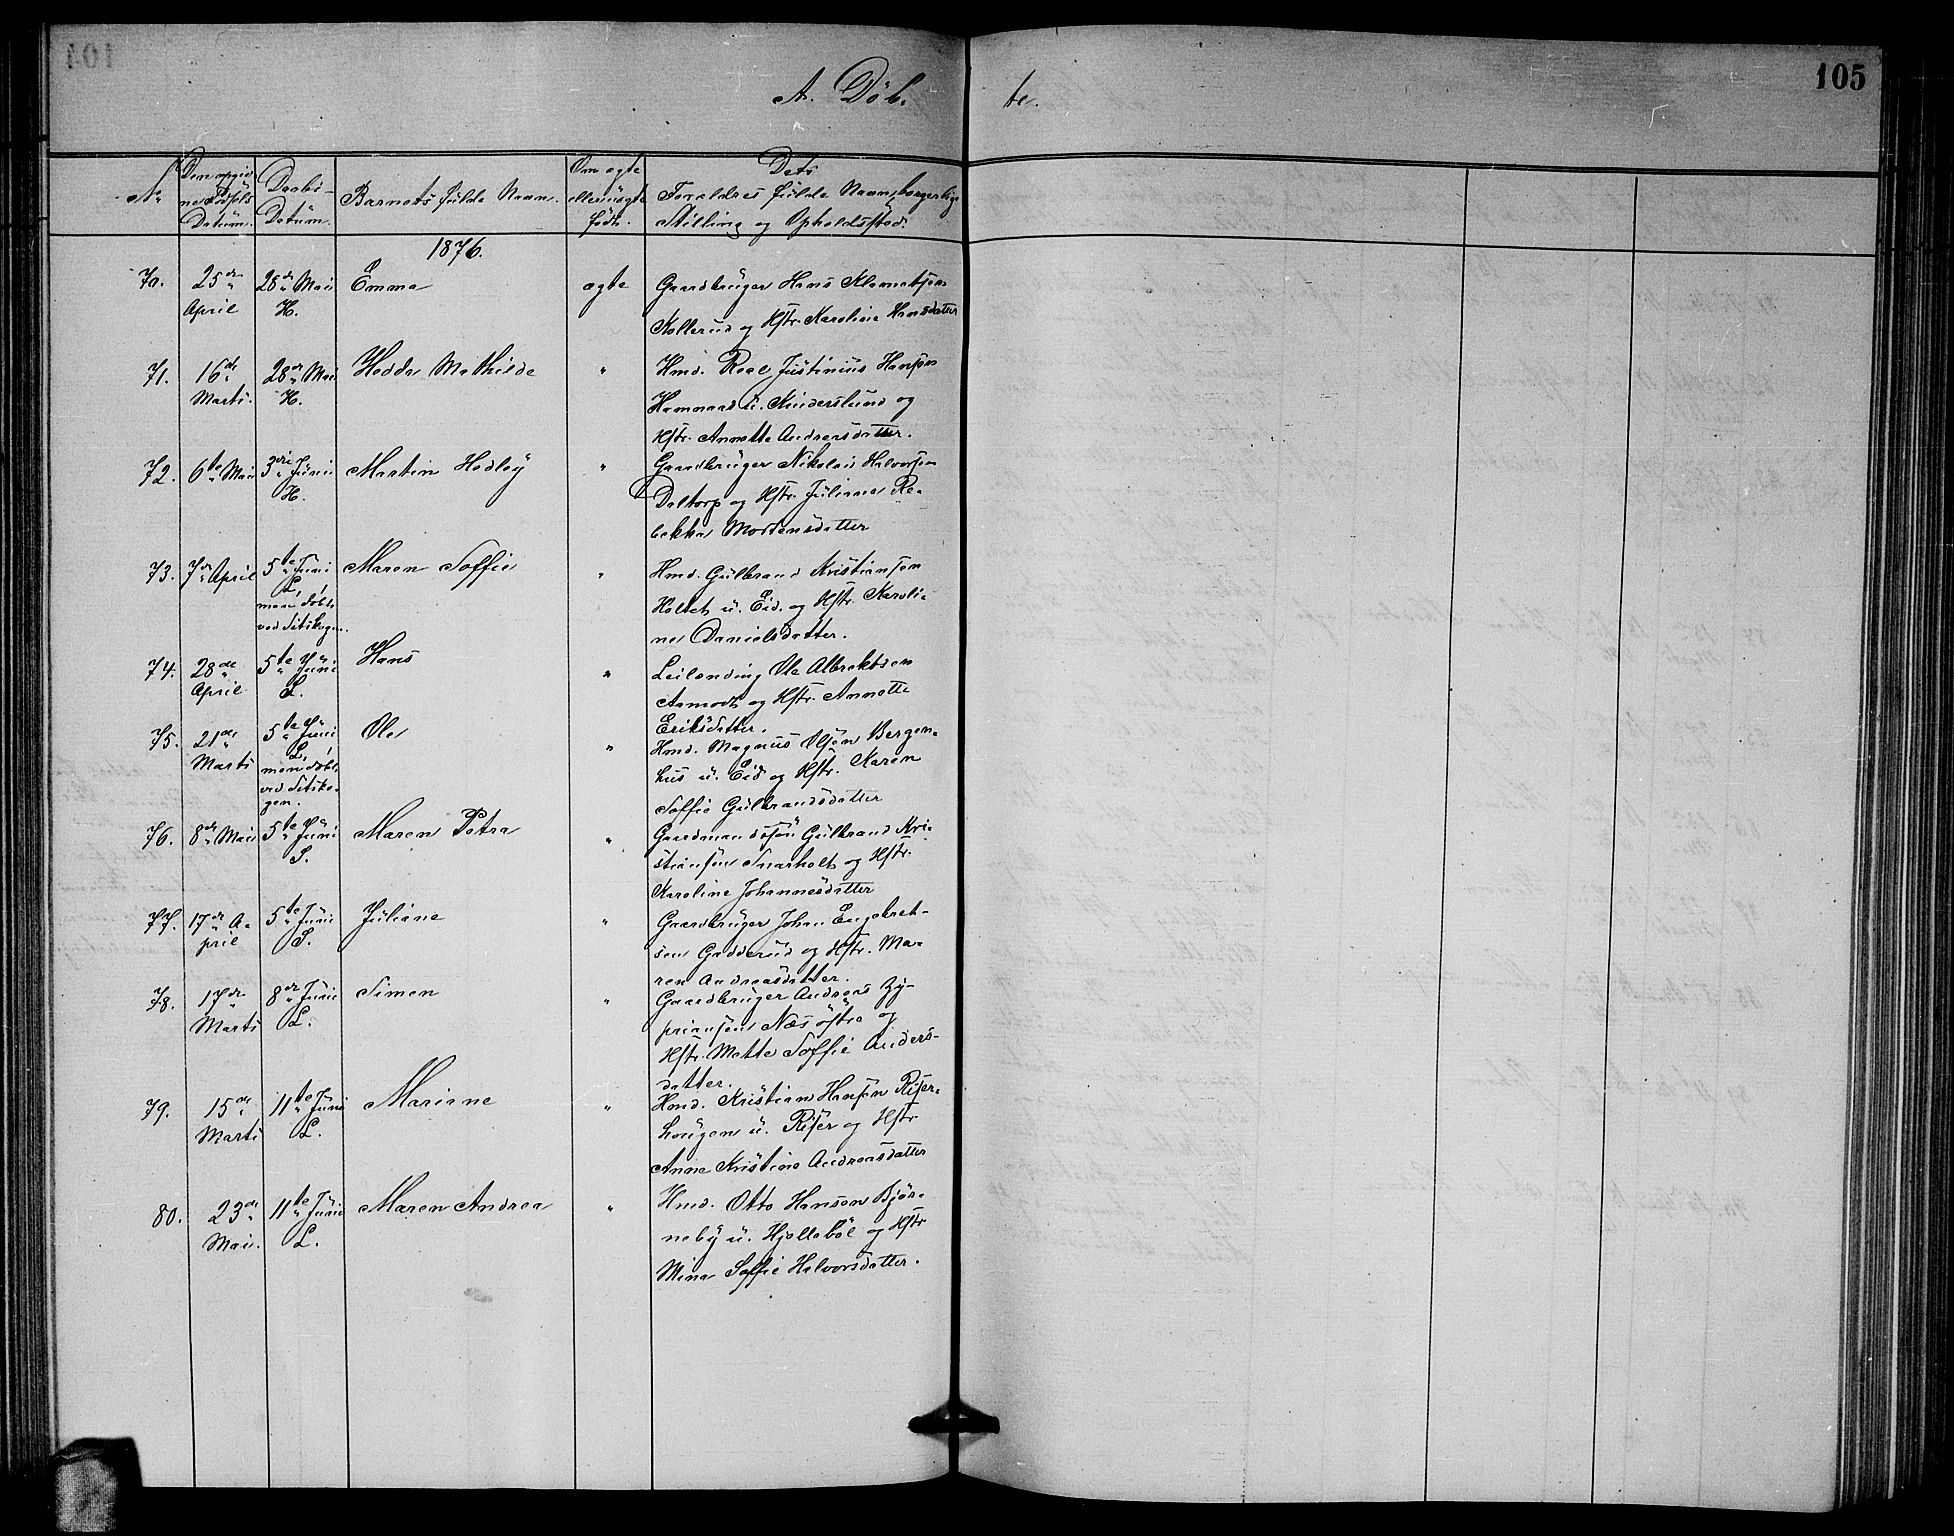 105
A. Döb- te.
No
Den opgiv-
ne Födsels
Datum.
Daabs-
Datum.
Barnets fulde Navn.
Om ægte
eller uægte
födt.
Dets
Forældres fulde Navn, borgerlige
Stilling og Opholdssted.
1876.
70. 25de April 28de Mai H. Emma ægte
Gaardbruger Hans Klemetsen
Kollerud og Hstr. Karoline Hansdatter
71. 16de Marts. 28de Mai H. Hedda Mathilde "
Hmd. Roal Justinius Hansen
Hammar u. Kinderslund og
Hstr. Annette Andreasdatter.
72. 6te Mai 3die Juni H. Martin Hedley "
Gaardbruger Nikolai Halvorsen
Daltorp og Hstr. Juliane Re-
bekka Mortensdatter
73. 7de April 5te Juni L, men döbt ved Setskogen. Maren Soffie "
Hmd. Gulbrand Kristiansen
Holtet u. Eid. og Hstr. Karoli-
ne Danielsdatter.
74. 28de April 5te Juni L. Hans "
Leilending Ole Albrektsen
Aamodt og Hstr. Annette
Eriksdatter.
75. 21de Marts 5te Juni L, men döbt ved Setsko-
gen. Ole "
Hmd. Magnus Olsen Bergen-
hus u. Eid og Hstr. Karen
Soffie Gulbrandsdatter
76. 8de Mai 5te Juni S. Maren Petra "
Gaardmandssön Gulbrand Kri-
stiansen Snarholt og Hstr.
Karoline Johannesdatter
77. 17de A-
pril 5te Juni S. Juliane "
Gaardbruger Johan Engebret-
sen Gadderud og Hstr. Ma-
ren Andreasdatter.
78. 17de Marts 8de Juni L. Simen "
Gaardbruger Andreas Zy-
priansen Næs östre og
Hstr. Mette Soffie Anders-
datter.
79. 15de Marts 11te Juni L. Mariane "
Hmd. Kristian Hansen Riser-
hougen u. Riser og Hstr
Anne Kristine Andreasdatter
80. 23de Mai. 11te Juni L. Maren Andrea "
Hmd. Otto Hansen Björ-
neby u. Hjelleböl og Hstr
Mina Soffie Halvorsdatter.